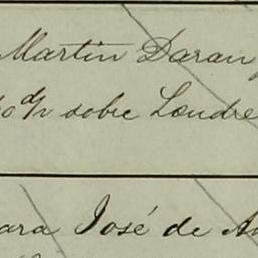 Martin Daran
d/v sobre Londre
ara José de A